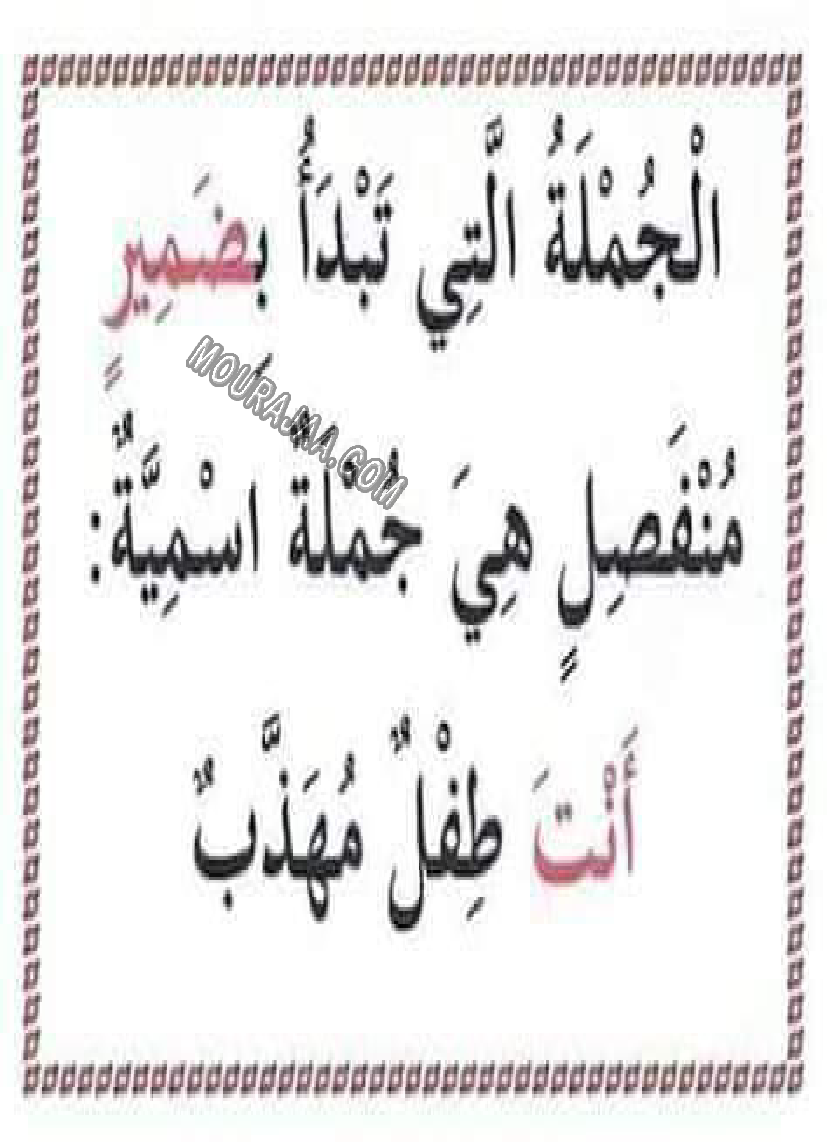 الْجُمْلَةُ الَّتِي تَبْدَأُ بِضَمِيرٍ
MOURAJAA.COM
مُنْفَصِلٍ هِيَ جُمْلَةٌ اسْمِيَّةٌ:
أَنْتَ طِفْلٌ مُهَذَّبٌ